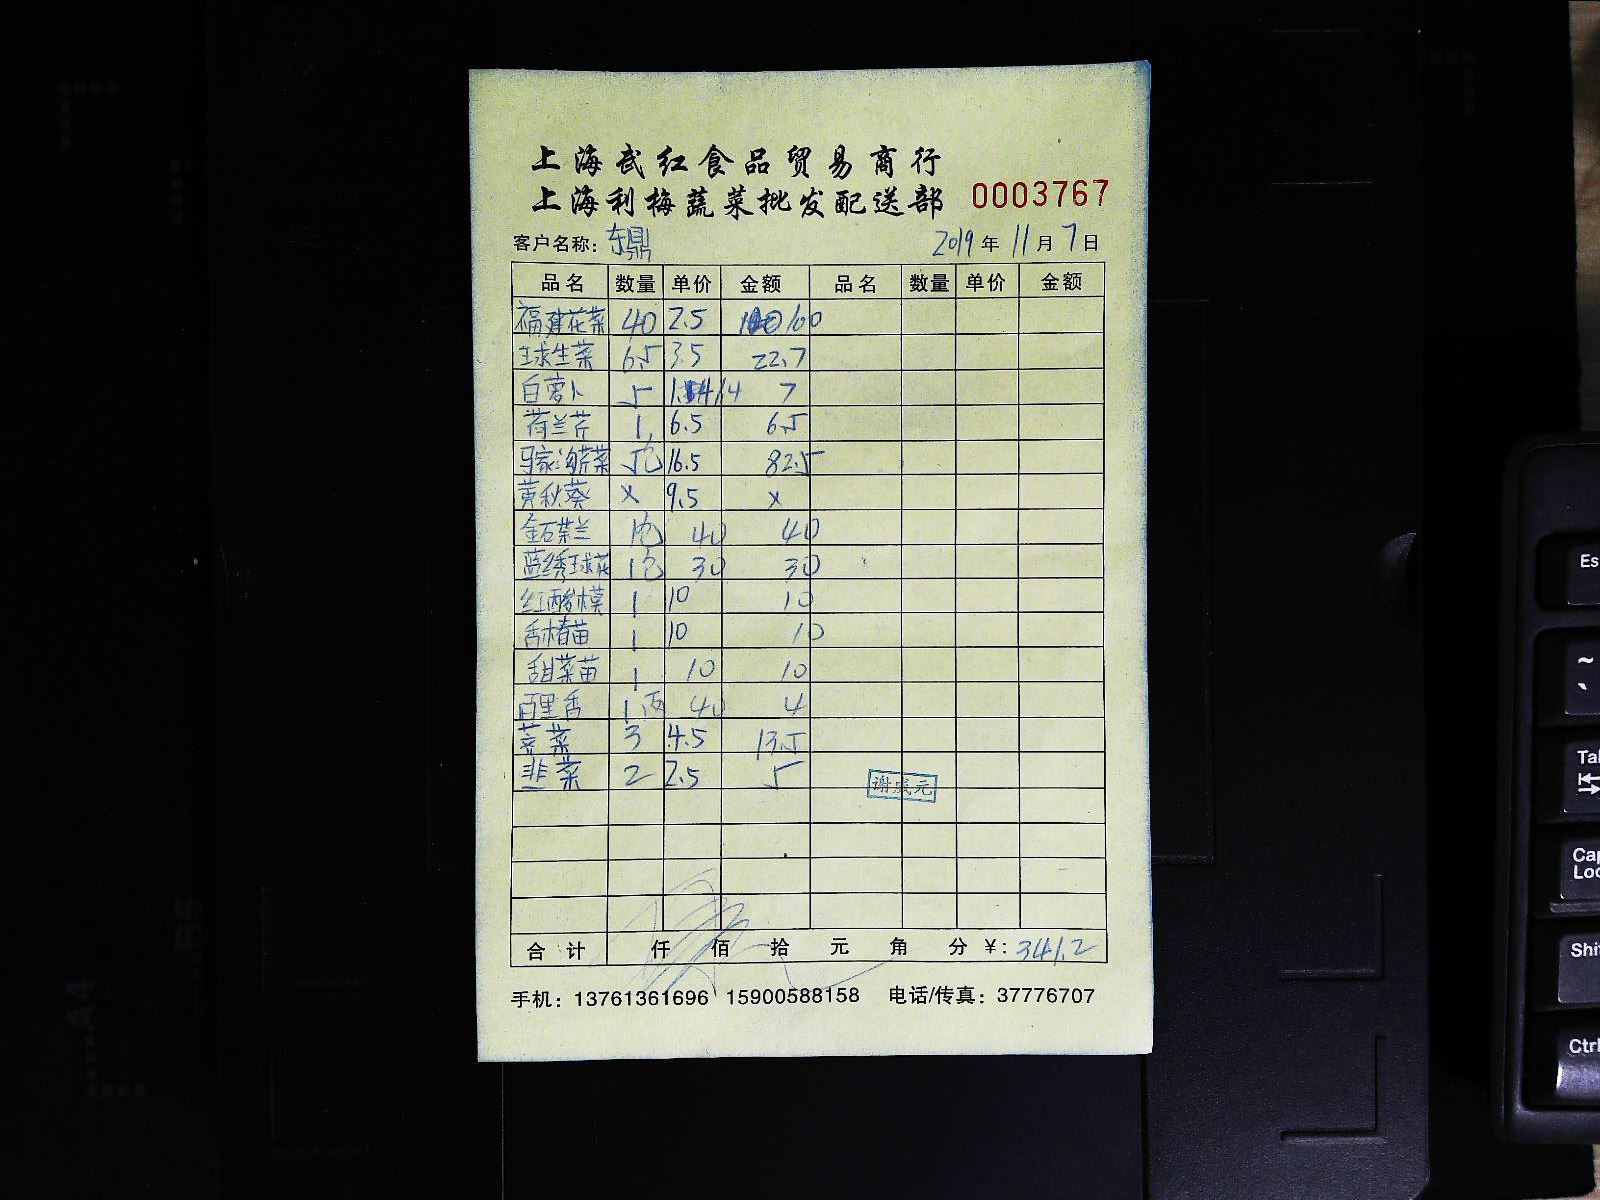 上海武红食品贸易商行
上海利梅蔬菜批发配送部 0003767
客户名称: 东鼎 2019年11月7日
品名 数量 单价 金额 品名 数量 单价 金额
福建花菜 40 2.5 100
球生菜 6.5 3.5 22.7
白萝卜 5 1.4 7
荷兰芹 1 6.5 6.5
马家沟芹菜 5包 16.5 82.5
黄秋葵 x 9.5 x
金石斛兰 1包 40 40
蓝绣球花 1包 30 30
红酸模 1 10 10
香椿苗 1 10 10
甜菜苗 1 10 10
百里香 1两 40 4
荠菜 3 4.5 13.5
韭菜 2 2.5 5
谢成元
合计 仟 佰 拾 元 角 分 ¥: 341.2
手机: 13761361696 15900588158 电话/传真: 37776707
A4
B5
Es
~
`
Tab
Caps
Lock
Shift
Ctrl